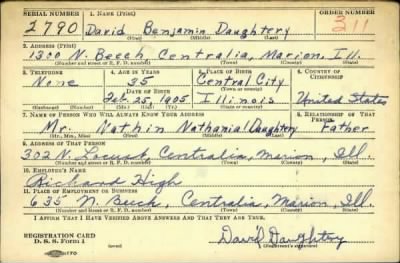 SERIAL NUMBER 1. NAME (Print) ORDER NUMBER
2790 David Benjamin Daughtery 311
(First) (Middle) (Last)
2. ADDRESS (Print)
1300 N. Beech, Centralia, Marion, Ill.
(Number and street or R. F. D. number) (Town) (County) (State)
3. TELEPHONE 4. AGE IN YEARS 5. PLACE OF BIRTH 6. COUNTRY OF CITIZENSHIP
None 35 Central City
DATE OF BIRTH (Town or county)
Feb. 25, 1905 Illinois United States
(Exchange) (Number) (Mo.) (Day) (Yr.) (State or country)
7. NAME OF PERSON WHO WILL ALWAYS KNOW YOUR ADDRESS 8. RELATIONSHIP OF THAT PERSON
Mr. Nathin Nathanial Daughtery Father
(Mr., Mrs., Miss) (First) (Middle) (Last)
9. ADDRESS OF THAT PERSON
302 N. Locust Centralia, Marion, Ill.
(Number and street or R. F. D. number) (Town) (County) (State)
10. EMPLOYER'S NAME
Richard High
11. PLACE OF EMPLOYMENT OR BUSINESS
635 N. Beech, Centralia, Marion, Ill.
(Number and street or R. F. D. number) (Town) (County) (State)
I AFFIRM THAT I HAVE VERIFIED ABOVE ANSWERS AND THAT THEY ARE TRUE.
REGISTRATION CARD
D. S. S. Form 1 David Daughtery
(Registrant's signature)